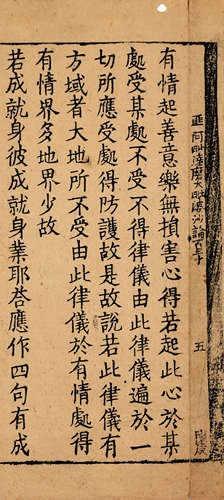 有情起善意樂無損害心得若起此心於某
處受某處不受不得律儀由此律儀遍於一
切所應受處得防護故是故說若此律儀有
方域者大地所不受由此律儀於有情處得
有情界多地界少故
若成就身彼成就身業耶荅應作四句有成
阿毗達磨大毗婆沙論百二十
五